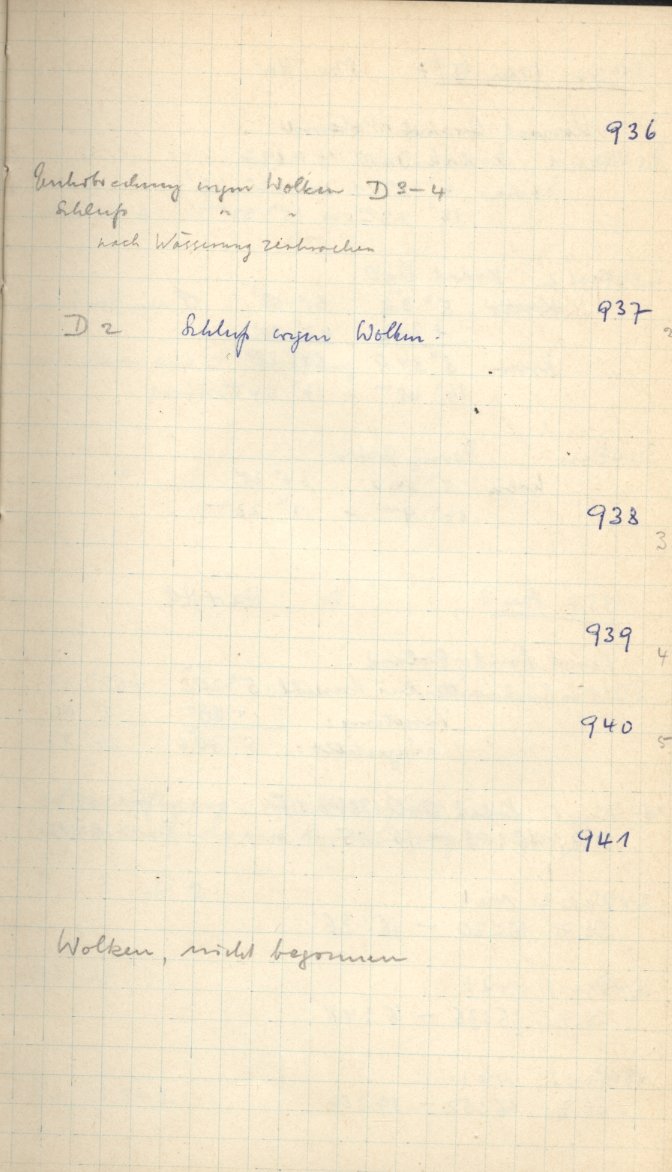 936
Unterbrechung wegen Wolken D 3-4
Schluß " "
nach Wässerung zerbrochen
937
D 2 Schluß wegen Wolken.
938
3
939
4
940
5
941
Wolken, nicht begonnen